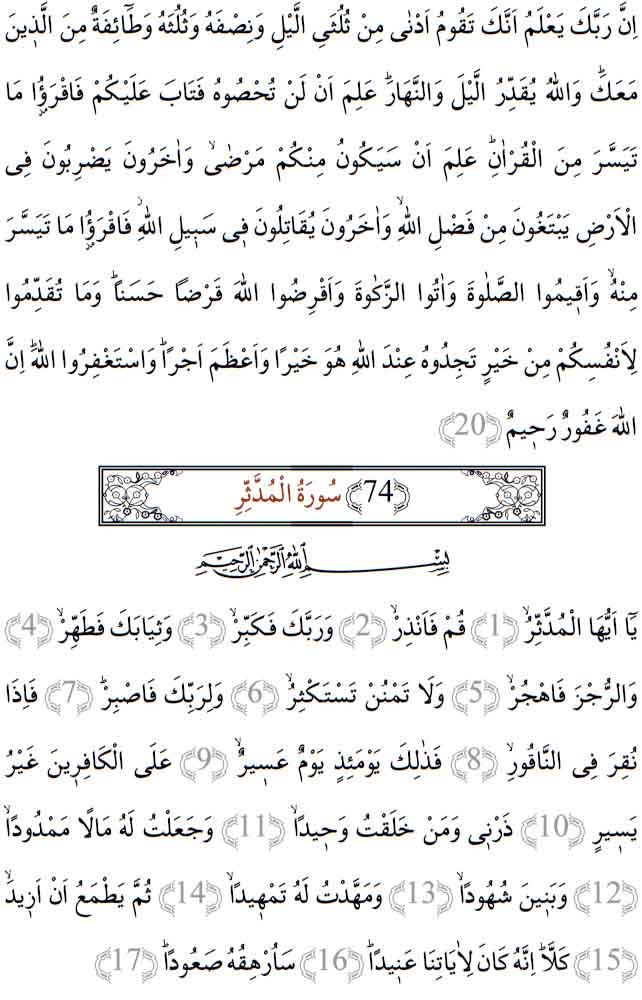 اِنَّ رَبَّكَ يَعْلَمُ اَنَّكَ تَقُومُ اَدْنٰى مِنْ ثُلُثَىِ الَّيْلِ وَنِصْفَهُ وَثُلُثَهُ وَطَٓائِفَةٌ مِنَ الَّذٖينَ
مَعَكَؕ وَاللّٰهُ يُقَدِّرُ الَّيْلَ وَالنَّهَارَؕ عَلِمَ اَنْ لَنْ تُحْصُوهُ فَتَابَ عَلَيْكُمْ فَاقْرَؤُ۫ا مَا
تَيَسَّرَ مِنَ الْقُرْاٰنِؕ عَلِمَ اَنْ سَيَكُونُ مِنْكُمْ مَرْضٰىۙ وَاٰخَرُونَ يَضْرِبُونَ فِى
الْاَرْضِ يَبْتَغُونَ مِنْ فَضْلِ اللّٰهِۙ وَاٰخَرُونَ يُقَاتِلُونَ فٖى سَبٖيلِ اللّٰهِؗ فَاقْرَؤُ۫ا مَا تَيَسَّرَ
مِنْهُۙ وَاَقٖيمُوا الصَّلٰوةَ وَاٰتُوا الزَّكٰوةَ وَاَقْرِضُوا اللّٰهَ قَرْضًا حَسَنًاؕ وَمَا تُقَدِّمُوا
لِاَنْفُسِكُمْ مِنْ خَيْرٍ تَجِدُوهُ عِنْدَ اللّٰهِ هُوَ خَيْرًا وَاَعْظَمَ اَجْرًاؕ وَاسْتَغْفِرُوا اللّٰهَؕ اِنَّ
اللّٰهَ غَفُورٌ رَحٖيمٌ ﴿20﴾
﴿74﴾ سُورَةُ الْمُدَّثِّرِ
بِسْمِ اللّٰهِ الرَّحْمٰنِ الرَّحٖيمِ
يَٓا اَيُّهَا الْمُدَّثِّرُۙ ﴿1﴾ قُمْ فَاَنْذِرْۙ ﴿2﴾ وَرَبَّكَ فَكَبِّرْۙ ﴿3﴾ وَثِيَابَكَ فَطَهِّرْۙ ﴿4﴾
وَالرُّجْزَ فَاهْجُرْۙ ﴿5﴾ وَلَا تَمْنُنْ تَسْتَكْثِرُۙ ﴿6﴾ وَلِرَبِّكَ فَاصْبِرْؕ ﴿7﴾ فَاِذَا
نُقِرَ فِى النَّاقُورِۙ ﴿8﴾ فَذٰلِكَ يَوْمَئِذٍ يَوْمٌ عَسٖيرٌۙ ﴿9﴾ عَلَى الْكَافِرٖينَ غَيْرُ
يَسٖيرٍ ﴿10﴾ ذَرْنٖى وَمَنْ خَلَقْتُ وَحٖيدًاۙ ﴿11﴾ وَجَعَلْتُ لَهُ مَالًا مَمْدُودًاۙ
﴿12﴾ وَبَنٖينَ شُهُودًاۙ ﴿13﴾ وَمَهَّدْتُ لَهُ تَمْهٖيدًاۙ ﴿14﴾ ثُمَّ يَطْمَعُ اَنْ اَزٖيدَۙ
﴿15﴾ كَلَّاؕ اِنَّهُ كَانَ لِاٰيَاتِنَا عَنٖيدًاؕ ﴿16﴾ سَاُرْهِقُهُ صَعُودًاؕ ﴿17﴾